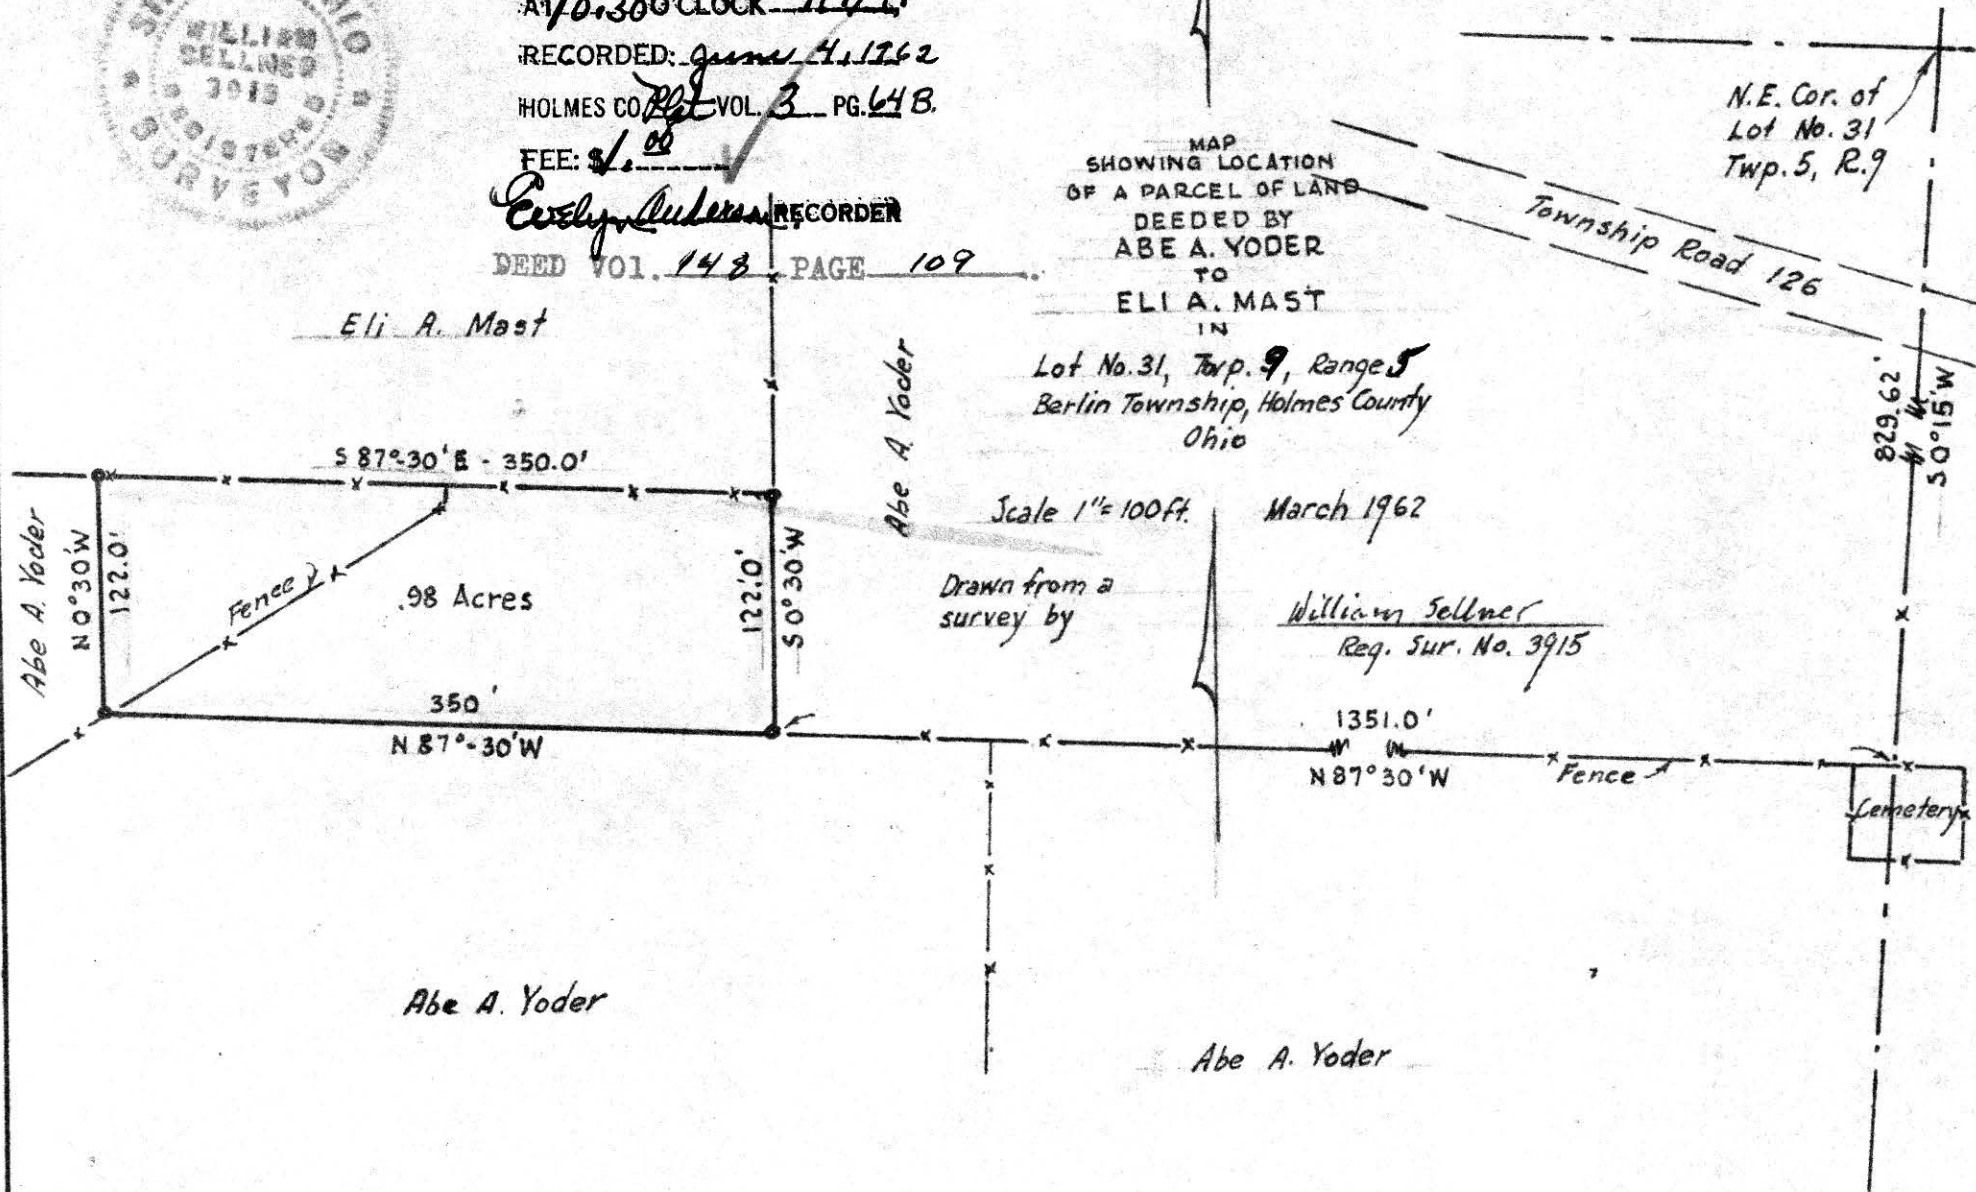 WILLIAM
SELLNER
3915
REGISTERED
SURVEYOR
AT 10:30 O'CLOCK
RECORDED: June 4, 1962
HOLMES CO. Plat VOL. 3 PG. 64 B.
FEE: $1.00
Evelyn RECORDER
DEED VOl. 148 PAGE 109
MAP
SHOWING LOCATION
OF A PARCEL OF LAND
DEEDED BY
ABE A. YODER
TO
ELI A. MAST
IN
Lot No. 31, Twp. 9, Range 5
Berlin Township, Holmes County
Ohio
Scale 1"= 100 ft. March 1962
Drawn from a
survey by
William Sellner
Reg. Sur. No. 3915
N.E. Cor. of
Lot No. 31
Twp. 5, R. 9
Township Road 126
829.62'
S 0°15'W
Eli A. Mast
Abe A. Yoder
S 87°-30'E - 350.0'
Abe A. Yoder
N 0°30'W
122.0'
Fence
.98 Acres
122.0'
S 0°30'W
350'
N 87°-30'W
1351.0'
N 87°30'W
Fence
Cemetery
Abe A. Yoder
Abe A. Yoder